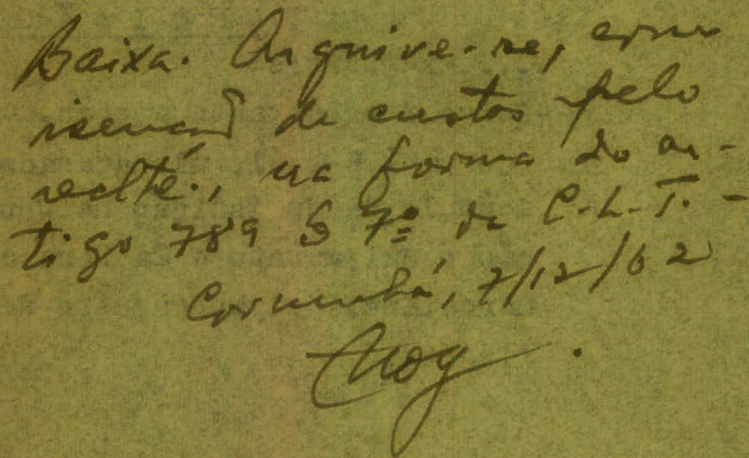 Baixa. Arquive-se, com
isenção de custas pelo
reclte., na forma do ar-
tigo 789 § 7º da C.L.T. -
Corumbá, 7/12/62